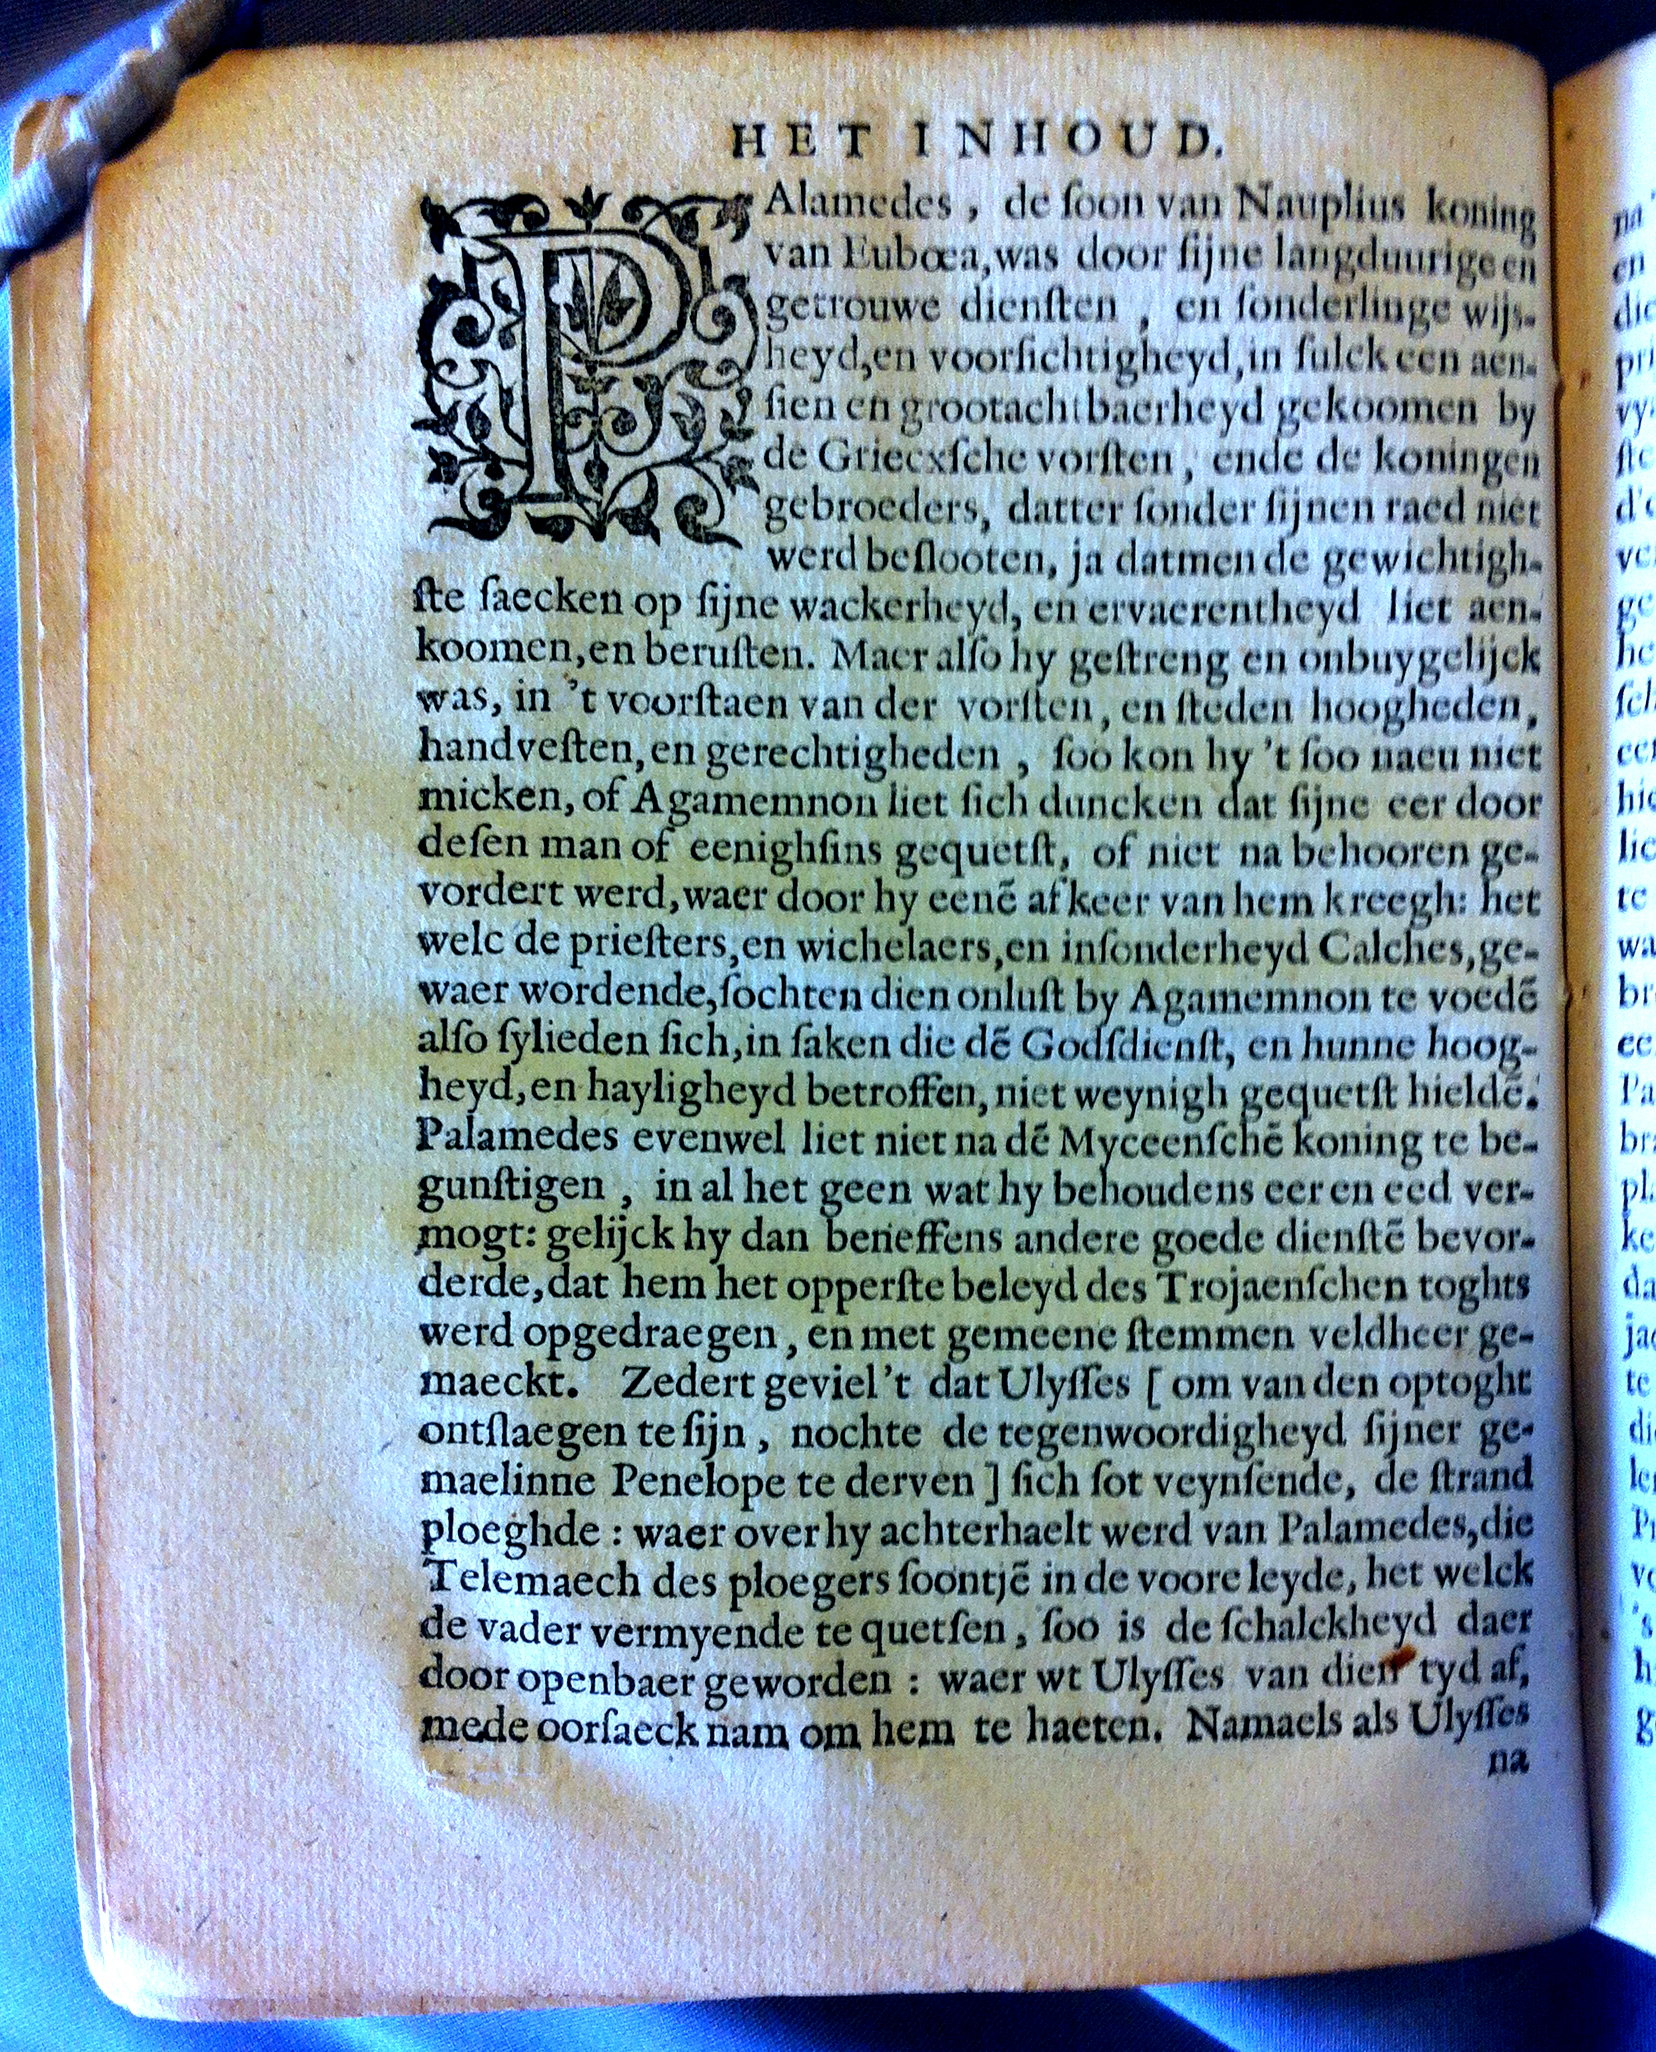 HET INHOUD.
PAlamedes, de ſoon van Nauplius koning
van Eubœa, was door ſijne langduurige en
getrouwe dienſten, en ſonderlinge wijs-
heyd, en voorſichtigheyd, in ſulck een aen-
ſien en grootachtbaerheyd gekoomen by
de Griecxſche vorſten, ende de koningen
gebroeders, datter ſonder ſijnen raed niet
werd beſlooten, ja datmen de gewichtigh-
ſte ſaecken op ſijne wackerheyd, en ervaerentheyd liet aen-
koomen, en beruſten. Maer alſo hy geſtreng en onbuygelijck
was, in 't voorſtaen van der vorſten, en ſteden hoogheden,
handveſten, en gerechtigheden, ſoo kon hy 't ſoo naeu niet
micken, of Agamemnon liet ſich duncken dat ſijne eer door
deſen man of eenighſins gequetſt, of niet na behooren ge-
vordert werd, waer door hy eenē afkeer van hem kreegh: het
welc de prieſters, en wichelaers, en inſonderheyd Calches, ge-
waer wordende, ſochten dien onluſt by Agamemnon te voedē
alſo ſylieden ſich, in ſaken die dē Godſdienſt, en hunne hoog-
heyd, en hayligheyd betroffen, niet weynigh gequetſt hieldē.
Palamedes evenwel liet niet na dē Myceenſchē koning te be-
gunſtigen, in al het geen wat hy behoudens eer en eed ver-
mogt: gelijck hy dan beneffens andere goede dienſtē bevor-
derde, dat hem het opperſte beleyd des Trojaenſchen toghts
werd opgedraegen, en met gemeene ſtemmen veldheer ge-
maeckt. Zedert geviel't dat Ulyſſes [ om van den optoght
ontſlaegen te ſijn, nochte de tegenwoordigheyd ſijner ge-
maelinne Penelope te derven ] ſich ſot veynſende, de ſtrand
ploeghde: waer over hy achterhaelt werd van Palamedes, die
Telemaech des ploegers ſoontjē in de voore leyde, het welck
de vader vermyende te quetſen, ſoo is de ſchalckheyd daer
door openbaer geworden: waer wt Ulyſſes van dien tyd af,
mede oorſaeck nam om hem te haeten. Namaels als Ulyſſes
na